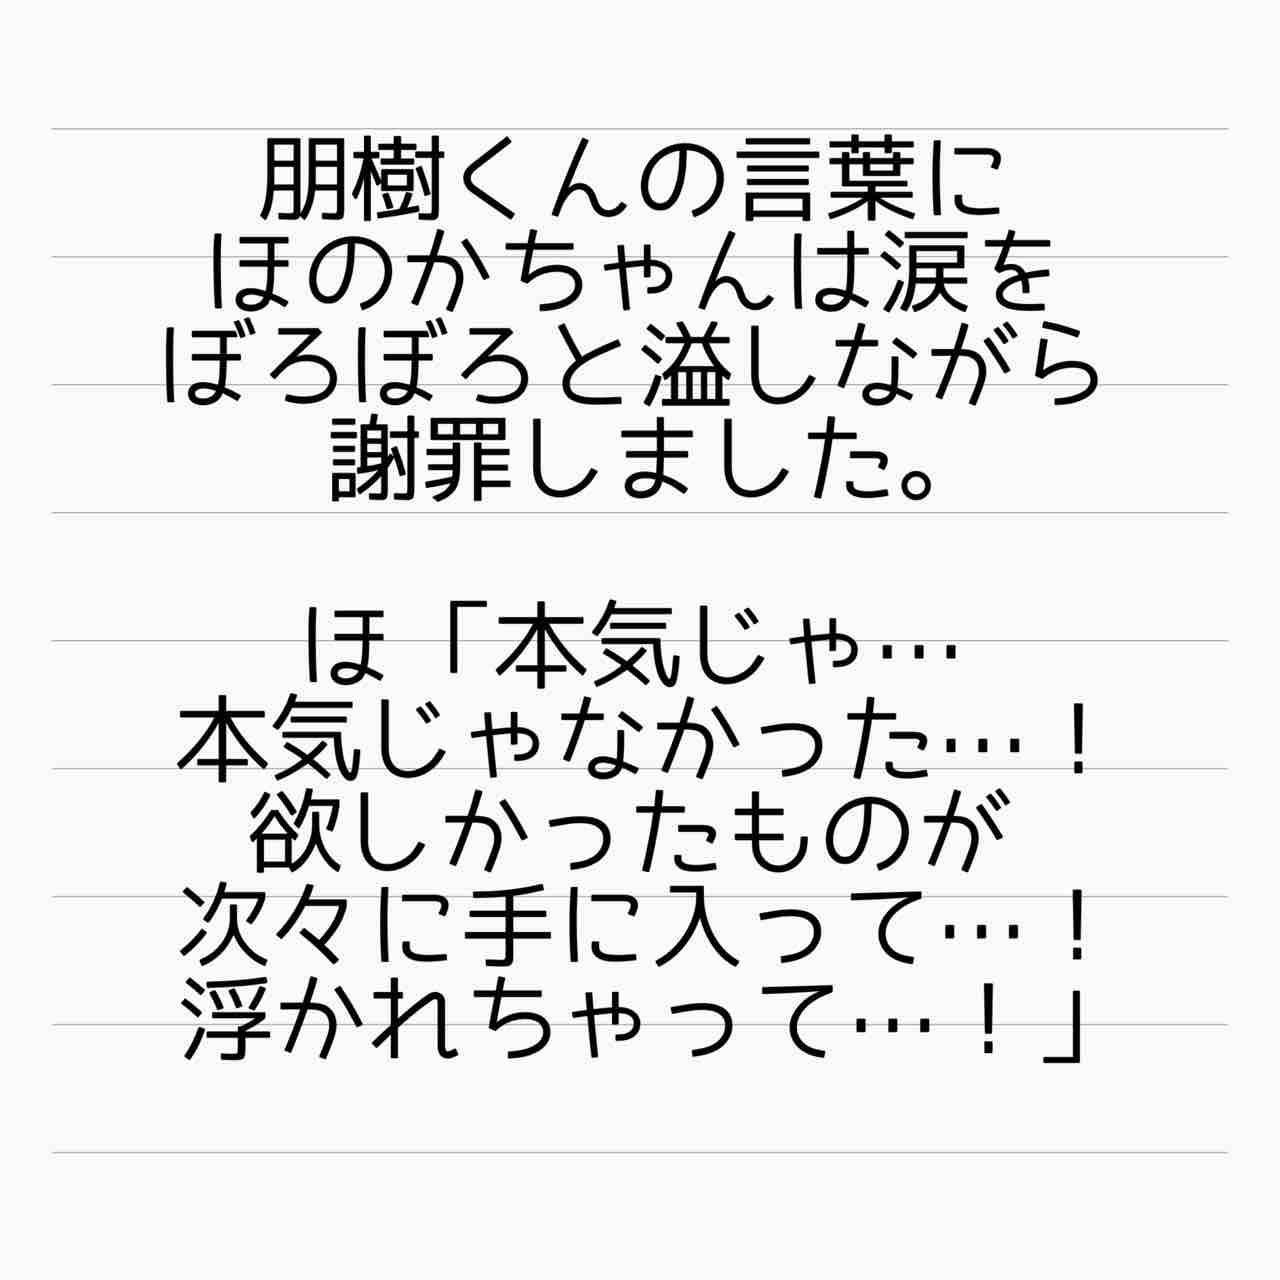 朋樹くんの言葉に
ほのかちゃんは涙を
ぼろぼろと溢しながら
謝罪しました。
ほ「本気じゃ…
本気じゃなかった…！
欲しかったものが
次々に手に入って…！
浮かれちゃって…！」